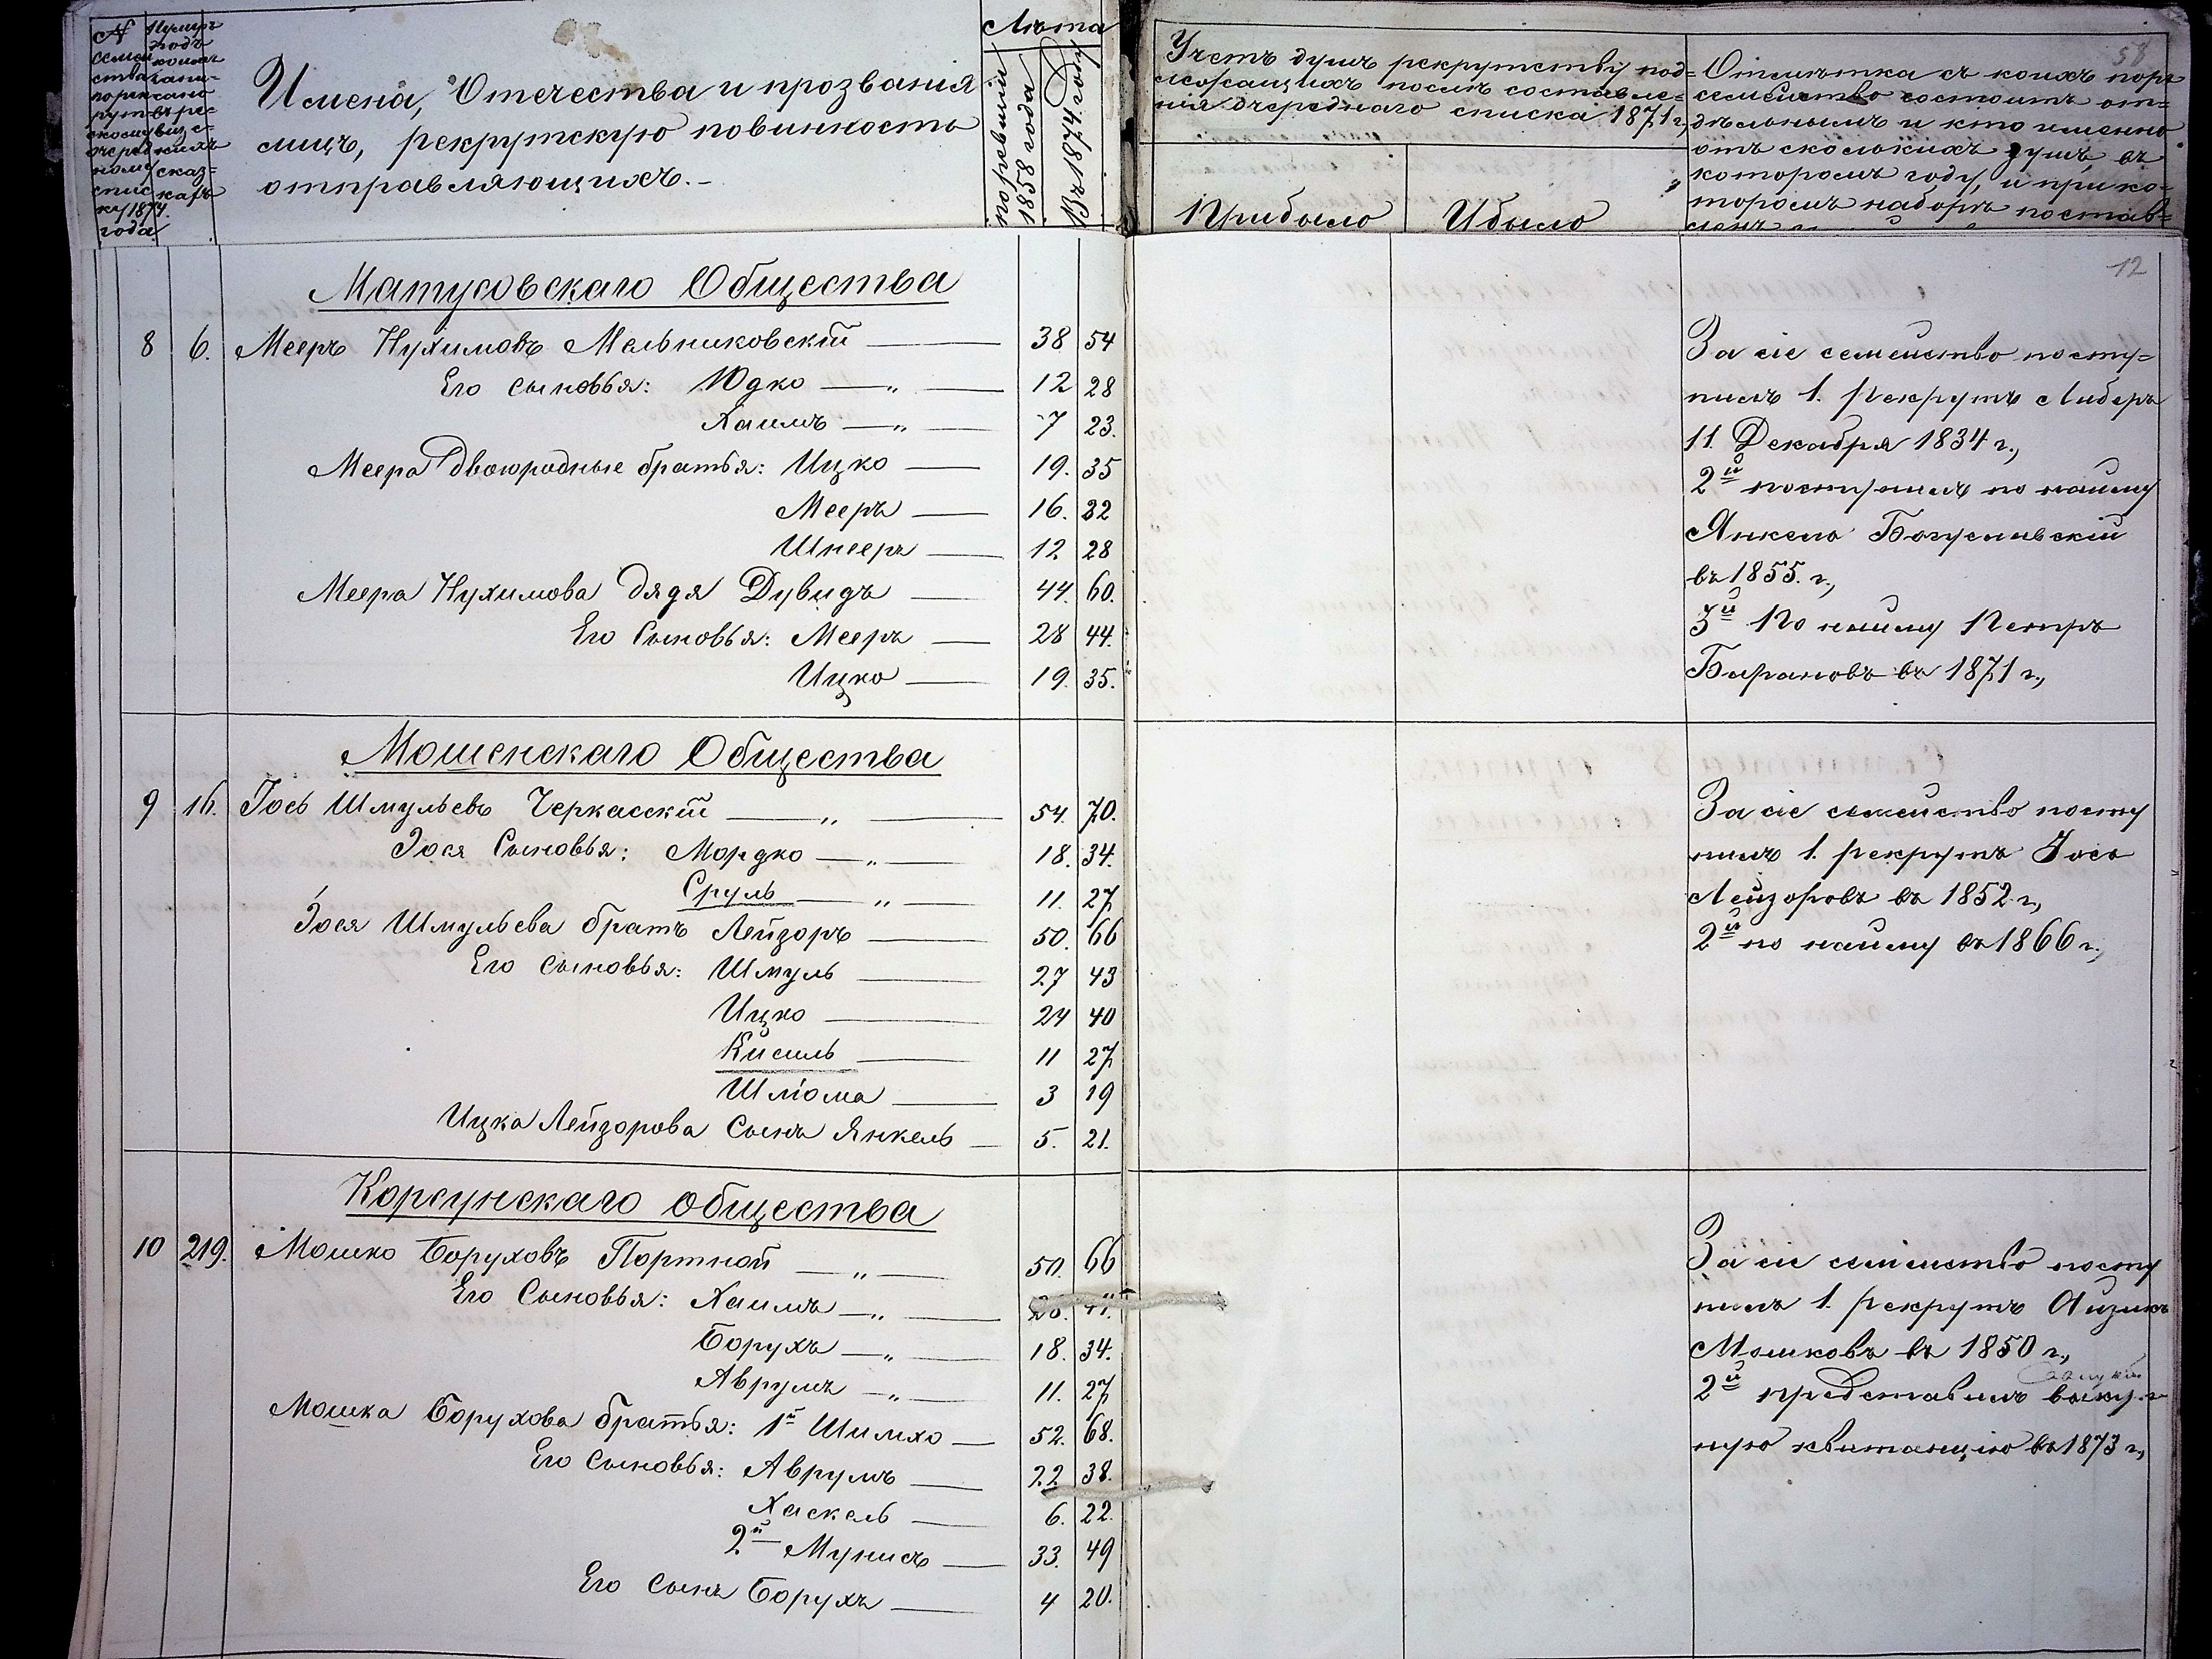 N семейства по рекрутскому очередному списку 1874 года.
Нумеръ подъ коимъ записано въ ревизскихъ сказкахъ
Имена, Отечества и прозванія
лицъ, рекрутскую повинность
отправляющихъ.-
Лѣта
по ревизіи 1858 года
Въ 1874 году
Учетъ душъ рекрутству под=
лежащихъ послѣ составле=
нія очереднаго списка 1871 г,
Прибыло
Убыло
58
Отмѣтка съ коихъ поръ
семейство состоитъ от=
дѣльнымъ и кто именно
отъ сколькихъ душъ, въ
которомъ году, и при ко=
торомъ наборѣ постав=
ленъ
12
Матусовскаго Общества
8 6. Мееръ Нухимовъ Мельниковскій — 38 54
Его сыновья: Юдко — „ — 12 28
Хаимъ — „ — 7 23.
Меера двоюродные братья: Ицко — 19. 35
Мееръ — 16. 32
Шнееръ — 12 28
Меера Нухимова дядя Дувидъ — 44. 60.
Его Сыновья: Мееръ — 28 44.
Ицко — 19. 35.
За сіе семейство посту=
пилъ 1. рекрутъ Либеръ
11. Декабря 1834 г.,
2й поступилъ по найму
Янкель Богуславскій
въ 1855. г.,
3й По найму Петръ
Барановъ въ 1871 г.,
Мошенскаго Общества
9 16. Іось Шмульевъ Черкасскій — „ — 54. 70.
Іося Сыновья: Мордко — „ — 18. 34.
Сруль — „ — 11. 27
Іося Шмульева братъ Лейзоръ — 50. 66
Его сыновья: Шмуль — 27 43
Ицко — 24 40
Кисиль — 11 27
Шліома — 3 19
Ицка Лейзорова Сынъ Янкель — 5. 21.
За сіе семейство посту
пилъ 1. рекрутъ Іось
Лейзоровъ въ 1852 г.,
2й по найму въ 1866 г.,
Корсунскаго общества
10 219. Мошко Боруховъ Портной — „ — 50. 66
Его Сыновья: Хаимъ — „ —
Борухъ — „ — 18. 34.
Аврумъ — „ — 11. 27
Мошка Борухова братья: 1й Шимхо — 52. 68.
Его Сыновья: Аврумъ — 22 38.
Хаскель — 6. 22.
2й Мунисъ — 33. 49
Его Сынъ Борухъ — 4 20.
За сіе семейство посту
пилъ 1. рекрутъ Айзикъ
Мошковъ въ 1850 г.,
2й представилъ
квитанцію въ 1873 г.,